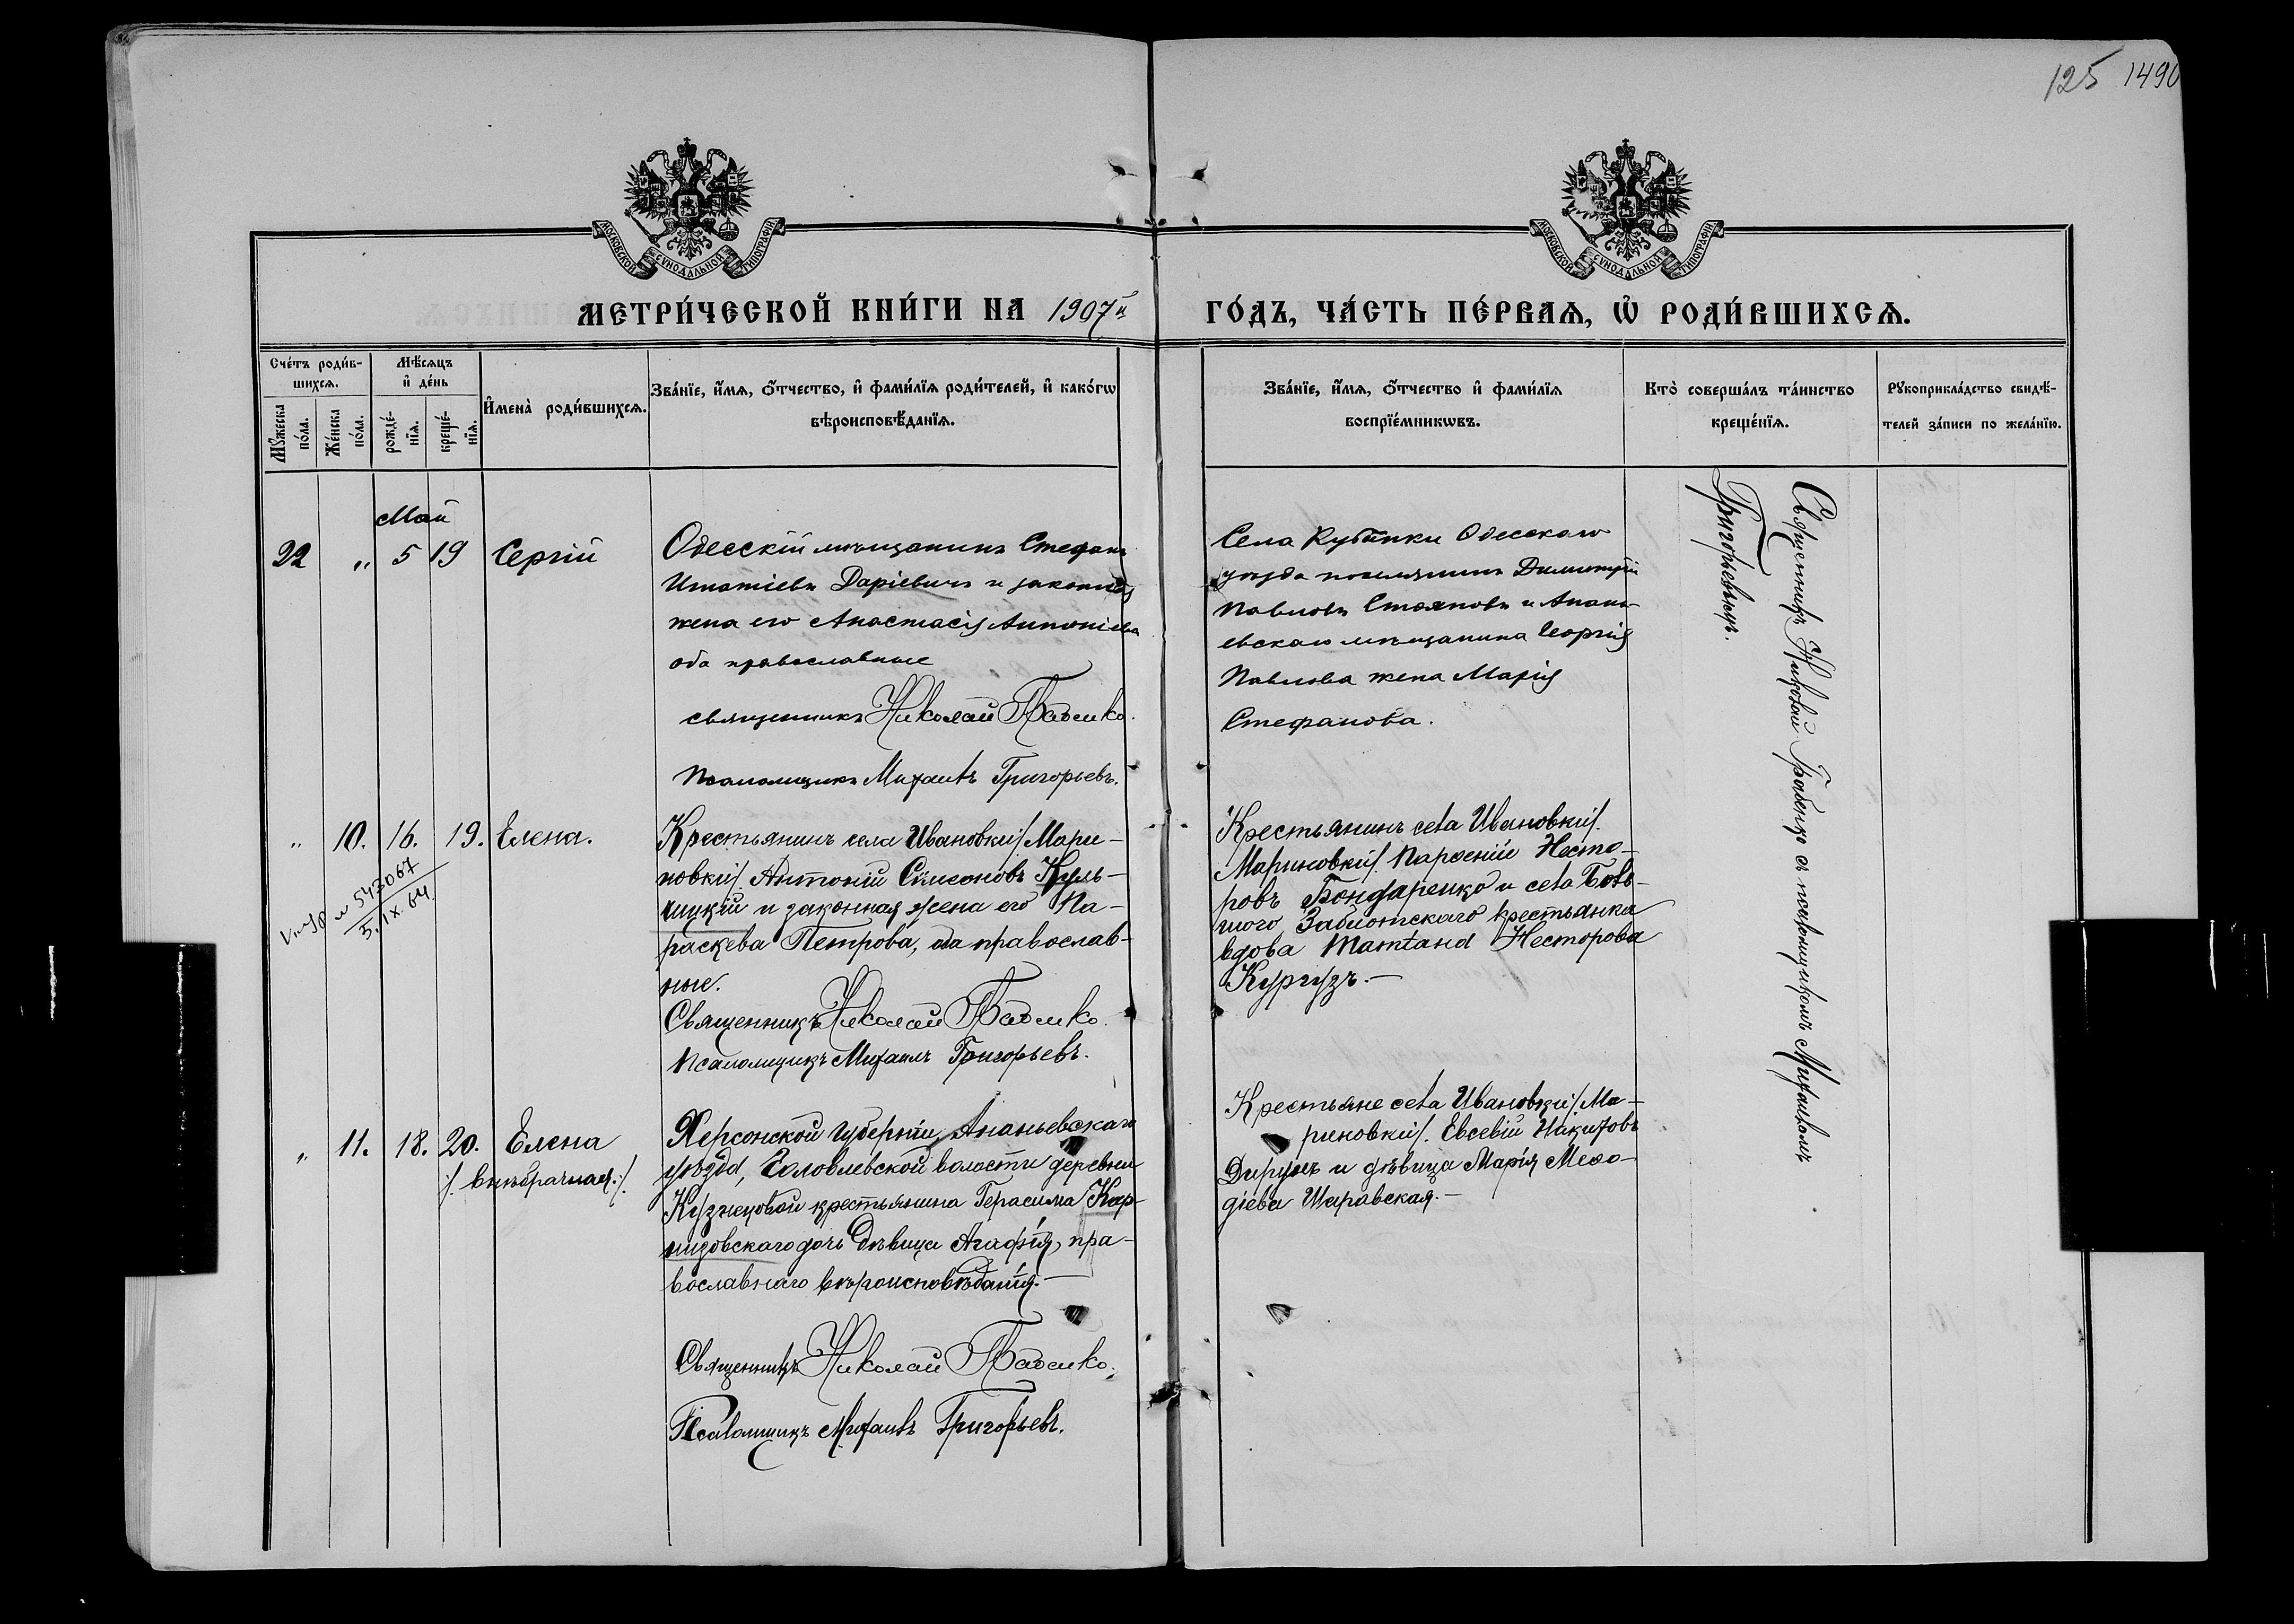 125 1490
МОСКОВСКОЙ СѴНОДАЛЬНОЙ ТИПОГРАФІИ
МОСКОВСКОЙ СѴНОДАЛЬНОЙ ТИПОГРАФІИ
МЕТРИ́ЧЕСКОЙ КНИ́ГИ НА 1907й ГО́ДЪ, ЧА́СТЬ ПЕ́РВАѦ, Ѡ҆ РОДИ́ВШИХСѦ.
Сче́тъ роди́в-
шихсѧ.
Мꙋ́жеска по́ла.
Же́нска по́ла.
Мѣ́сѧцъ
и҆ де́нь
рожде́-
нїѧ.
креще́-
нїѧ.
И҆мена̀ роди́вшихсѧ.
Зва́нїе, и҆́мѧ, ѻ҆́тчество, и҆ фами́лїѧ роди́телей, и҆ како́гѡ
вѣроисповѣ́данїѧ.
Зва́нїе, и҆́мѧ, ѻ҆́тчество и҆ фами́лїѧ
воспрїе́мникѡвъ.
Кто̀ соверша́лъ та́инство
креще́нїѧ.
Рꙋкоприкла́дство свидѣ́-
телей за́писи по жела́нїю.
Май
22 " 5 19 Сергій
Одесскій мѣщанинъ Стефанъ
Игнатіевъ Даріевичъ и законная
жена его Анастасія Антоніева
оба православные
священникъ Николай
Псаломщикъ Михаилъ Григорьевъ.
Села Кубанки Одесскаго
уѣзда поселянинъ Димитрій
Павловъ Стояновъ и Анань-
евскаго мѣщанина Георгія
Павлова жена Марія
Стефанова.
" 10. 16. 19. Елена.
547067
5.IX.64
Крестьянинъ села Ивановки /Мари-
новки/. Антоній Симеоновъ Куль-
чицкій и законная жена его Па-
раскева Петрова, оба православ-
ные.
Священникъ Николай
Псаломщикъ Михаилъ Григорьевъ.
Крестьянинъ села Ивановки/.
Мариновки/. Парѳеній Несто-
ровъ Бондаренко и села Боль-
шого крестьянка
вдова Татіана Несторова
Кургузъ.—
" 11. 18. 20. Елена
/. внѣбрачная:/.
Херсонской губерніи, Ананьевскаго
уѣзда, волости деревни
Кузнецовой крестьянина Герасима Кар-
низовскаго дочь дѣвица Агафія, пра-
вославнаго вѣроисповѣданія.—
Священникъ Николай
Псаломщикъ Михаилъ Григорьевъ.
Крестьяне села Ивановки/. Ма-
риновки/. Евсевій
и дѣвица Марія Меѳо-
діева Шаравская.—
Священникъ Николай съ псаломщикомъ Михаиломъ
Григорьевымъ.